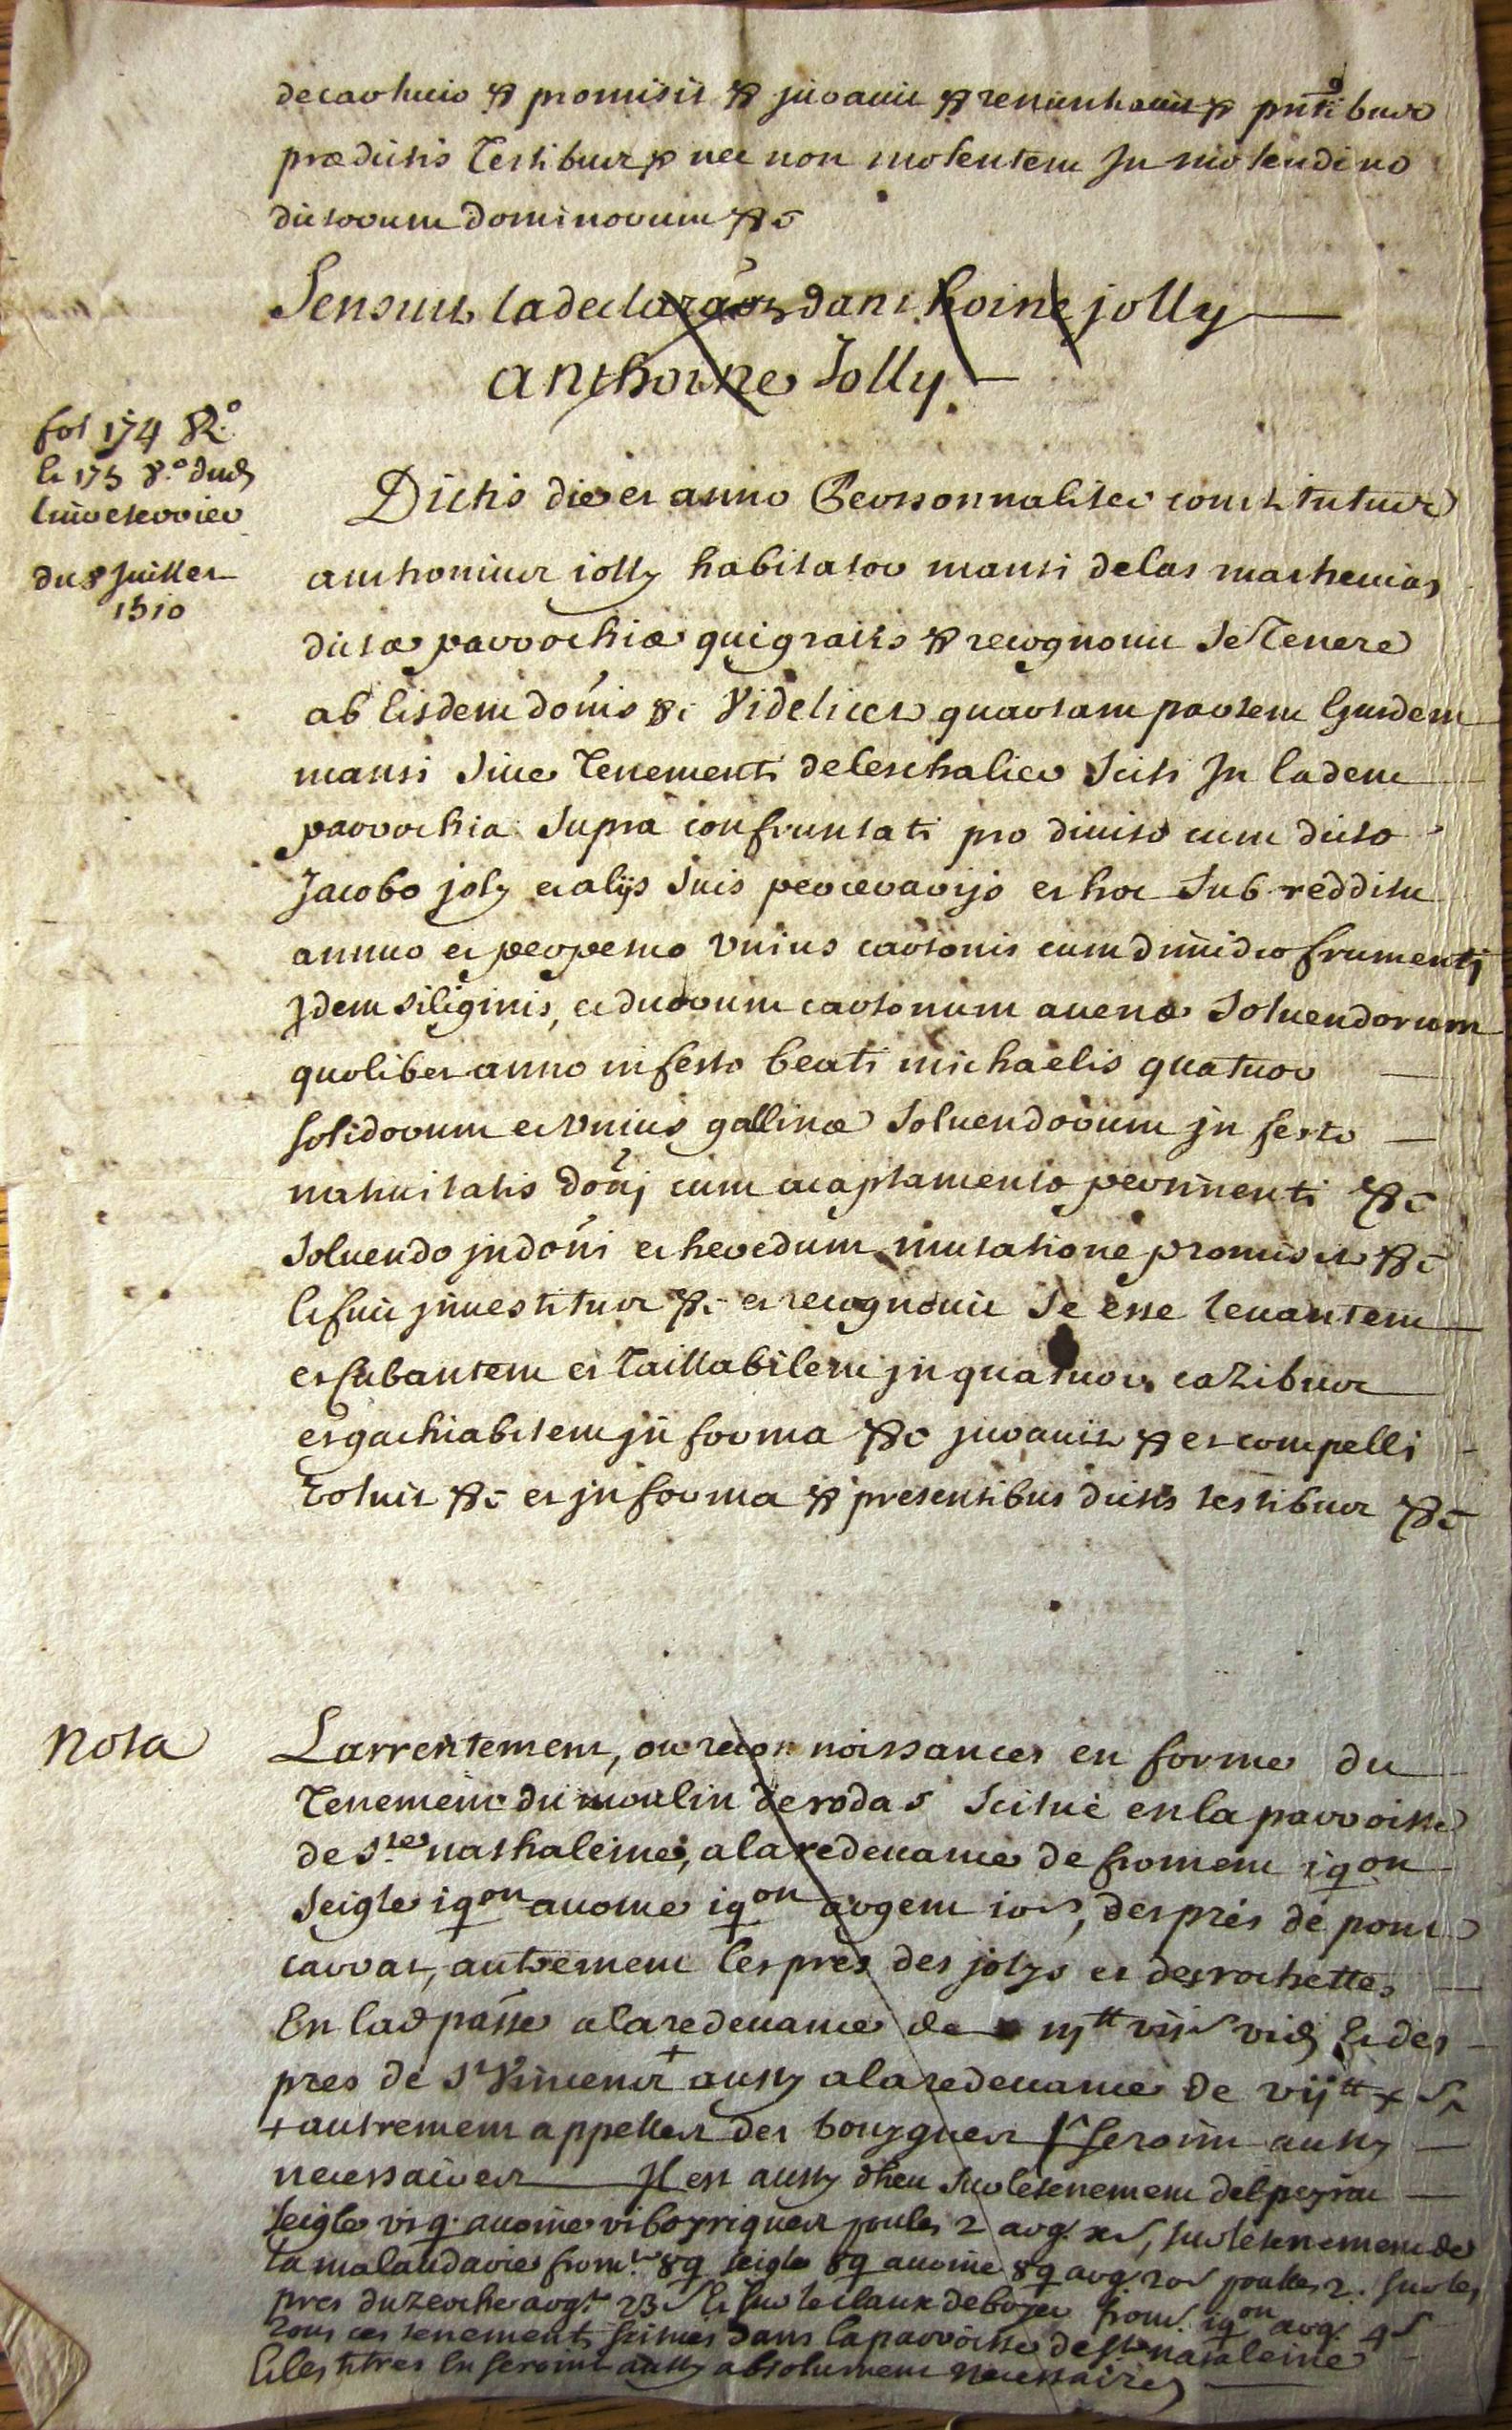 &c promisit &c juravit &c renuntiavit &c pntibus
prædictis Testibus &c nec non molentem In molendino
dictorum dominorum &c
Sensuit la declaraon danthoine jolly
anthoine Jolly
fol 174 R.o
Et 175 v.o dud
livre terrier
du 8 Juillet
1510
Dictis die et anno Personnaliter constitutus
anthonius jolly habitator mansi de las mathenias
dictæ parrochiæ qui gratis &c recognovit se Tenere
ab Eisdem dõnis &c Videlicet quartam partem Ejusdem
mansi sive Tenementi de leschalier sciti In Eadem
parrochia supra confruntati pro diviso cum dicto
Jacobo joly et alijs suis percerarijs et hoc sub redditu
annuo et perpetuo unius cartonis cum dimidio frumenti
Idem siliginis, et duorum cartonum avenæ solvendorum
quolibet anno in festo beati michaelis quatuor
solidorum et unius gallinæ solvendorum in festo
nativitatis dõnj cum acaptamento pertinenti &c
solvendo jn dõni et heredum mutatione promisit &c
Et fuit jnvestitus &c et recognovit se esse levantem
et cubantem et Taillabilem jn quatuor cazibus
et gachiabilem jn forma &c juravit &c et compelli
voluit &c et jn forma &c presentibus dictis testibus &c
Nota
Larrentement, ou reconnoissances en forme du
Tenement du moulin de rodas scitué en la parroisse
de Ste nathaleine, a la redevance de froment 1 qon
seigle 1 qon avoine 1 qon argent 10 s, des prés de pont
carrat, autrement les pres des jolys et des rochettes
En lad pãsse a la redevance de iij tt vij s vi d Et des
pres de St Vincent + aussy a la redevance de vij tt x s
+ autrement appelles des bouygues seront aussy
necessaires Il est aussy dheu sur le tenement del peyrou
seigle vi q. avoine vi boyriques poules 2 arg. x s, sur le tenement de
la malaudarie from.t 8 q seigle 8 q avoine 8 q arg. 20 s poulles 2. sur les
pres du arg.t 23 s Et sur le claux de boyer from. 1 qon arg. 4 s
Tous ces tenements scitues dans la parroisse de Ste nataleine
Et les titres En seront aussy absolument necessaires